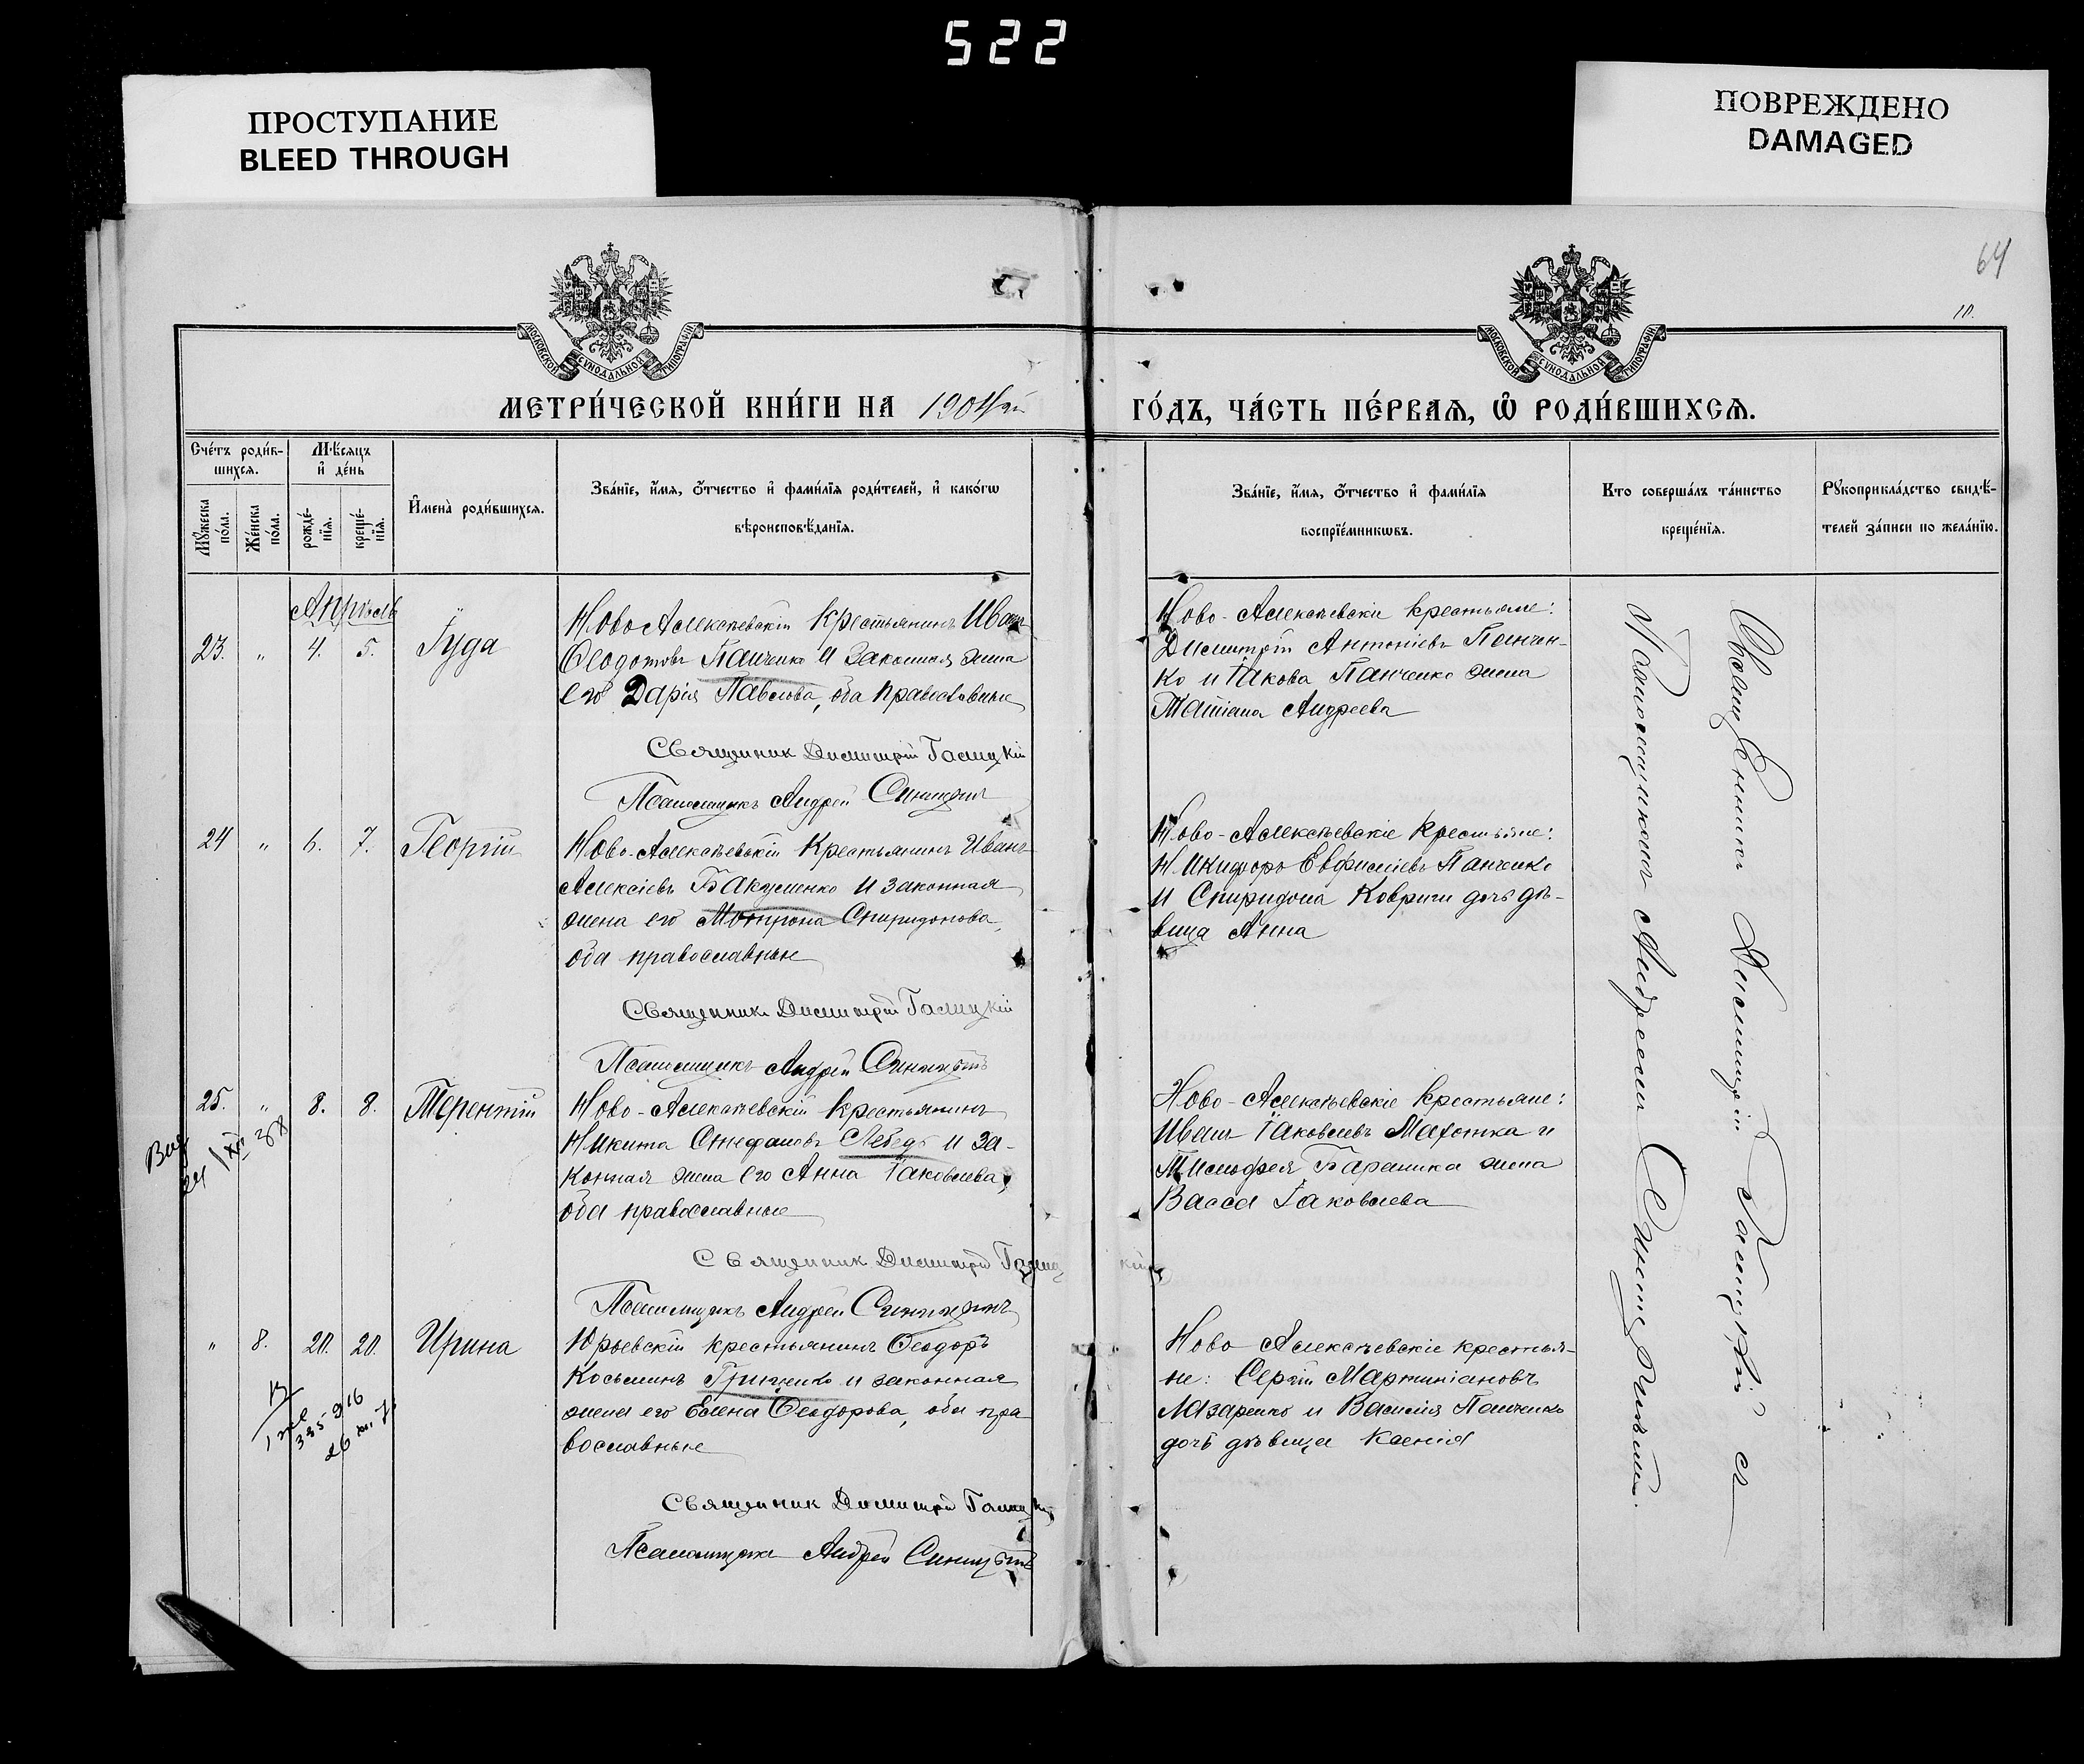 522
ПРОСТУПАНИЕ
BLEED THROUGH
ПОВРЕЖДЕНО
DAMAGED
64
10.
МОСКОВСКОЙ СѴНОДАЛЬНОЙ ТИПОГРАФІИ
МОСКОВСКОЙ СѴНОДАЛЬНОЙ ТИПОГРАФІИ
МЕТРИ́ЧЕСКОЙ КНИ́ГИ НА 1904й
ГО́ДЪ, ЧА́СТЬ ПЕ́РВАѦ, Ѡ РОДИ́ВШИХСѦ.
Сче́тъ роди́в-
шихсѧ.
Мѣ́сѧцъ
и҆ де́нь
Мꙋ́жеска
по́ла.
Же́нска
по́ла.
рожде́-
нїѧ.
креще́-
нїѧ.
И҆мена̀ роди́вшихсѧ.
Зва́нїе, и҆́мѧ, ѻ҆́тчество и҆ фами́лїѧ роди́телей, и҆ како́гѡ
вѣроисповѣ́данїѧ.
Зва́нїе, и҆́мѧ, ѻ҆́тчество и҆ фами́лїѧ
воспрїе́мникѡвъ.
Кто соверша́лъ та́инство
креще́нїѧ.
Рꙋкоприкла́дство свидѣ́-
телей за́писи по жела́нїю.
Апрѣль
23. " 4. 5. Іуда
НовоАлексѣевскій крестьянинъ Иванъ
Ѳеодотовъ Панченко и законная жена
его Дарія Павлова, оба православные
Священник Димитрій Галицкій
Псаломщикъ Андрей
Ново-Алексѣевскіе крестьяне:
Димитрій Антоніевъ Панчен-
ко и Іакова Панченко жена
Татіана Андреева
24 " 6. 7. Георгій
Ново-Алексѣевскій крестьянинъ Иванъ
Алексіевъ Бакуменко и законная
жена его Мотрона Спиридонова,
оба православные
Священникъ Димитрій Галицкій
Псаломщикъ Андрей
Ново-Алексѣевскіе крестьяне:
Никифоръ Евфиміевъ Панченко
и Спиридона Ковриги дочь дѣ-
вица Анна
25. " 8. 8. Терентій
Ново-Алексѣевскій крестьянинъ
Никита Стефановъ Лебедь и за-
конная жена его Анна Іаковлева,
оба православные
Священник Димитрій Галицкій
Псаломщикъ Андрей
Ново-Алексѣевскіе крестьяне:
Иванъ Іаковлевъ Махотка и
Тимофея Бараника жена
Васса Іаковлева
" 8. 20. 20. Ирина
Юрьевскій крестьянинъ Ѳеодоръ
Косьминъ Гриценко и законная
жена его Елена Ѳеодорова, оба пра
вославные
Священник Димитрій Галицкій
Псаломщикъ Андрей
Ново Алексѣевскіе крестья-
не: Сергій Мартиніановъ
Лазаренко и Василія Панченко
дочь дѣвица Ксенія
Священникъ Димитрій Галицкій съ
Псаломщикомъ Андреемъ